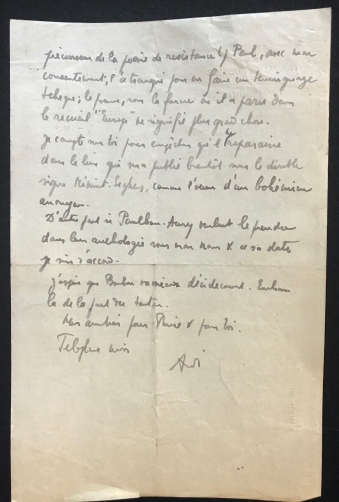 précurseur de la poésie de résistance by Paul, avec mon
consentement, l'a tronqué pour en faire un témoignage
tchèque; le poème, sous la forme où il a paru dans
le recueil "Europe" ne signifie plus grand chose.
Je compte sur toi pour empêcher qu'il reparaisse
dans le livre qui sera publié bientôt sous le double
signe Minuit-Seghers, comme l'œuvre d'un bohémien
anonyme.
D'autre part si Paulhan-Aury veulent le prendre
dans leur anthologie sous mon nom & sa date
je suis d'accord.
j'espère que décidément.
la de la part des
Mes amitiés pour & pour toi.
Téléphone moi